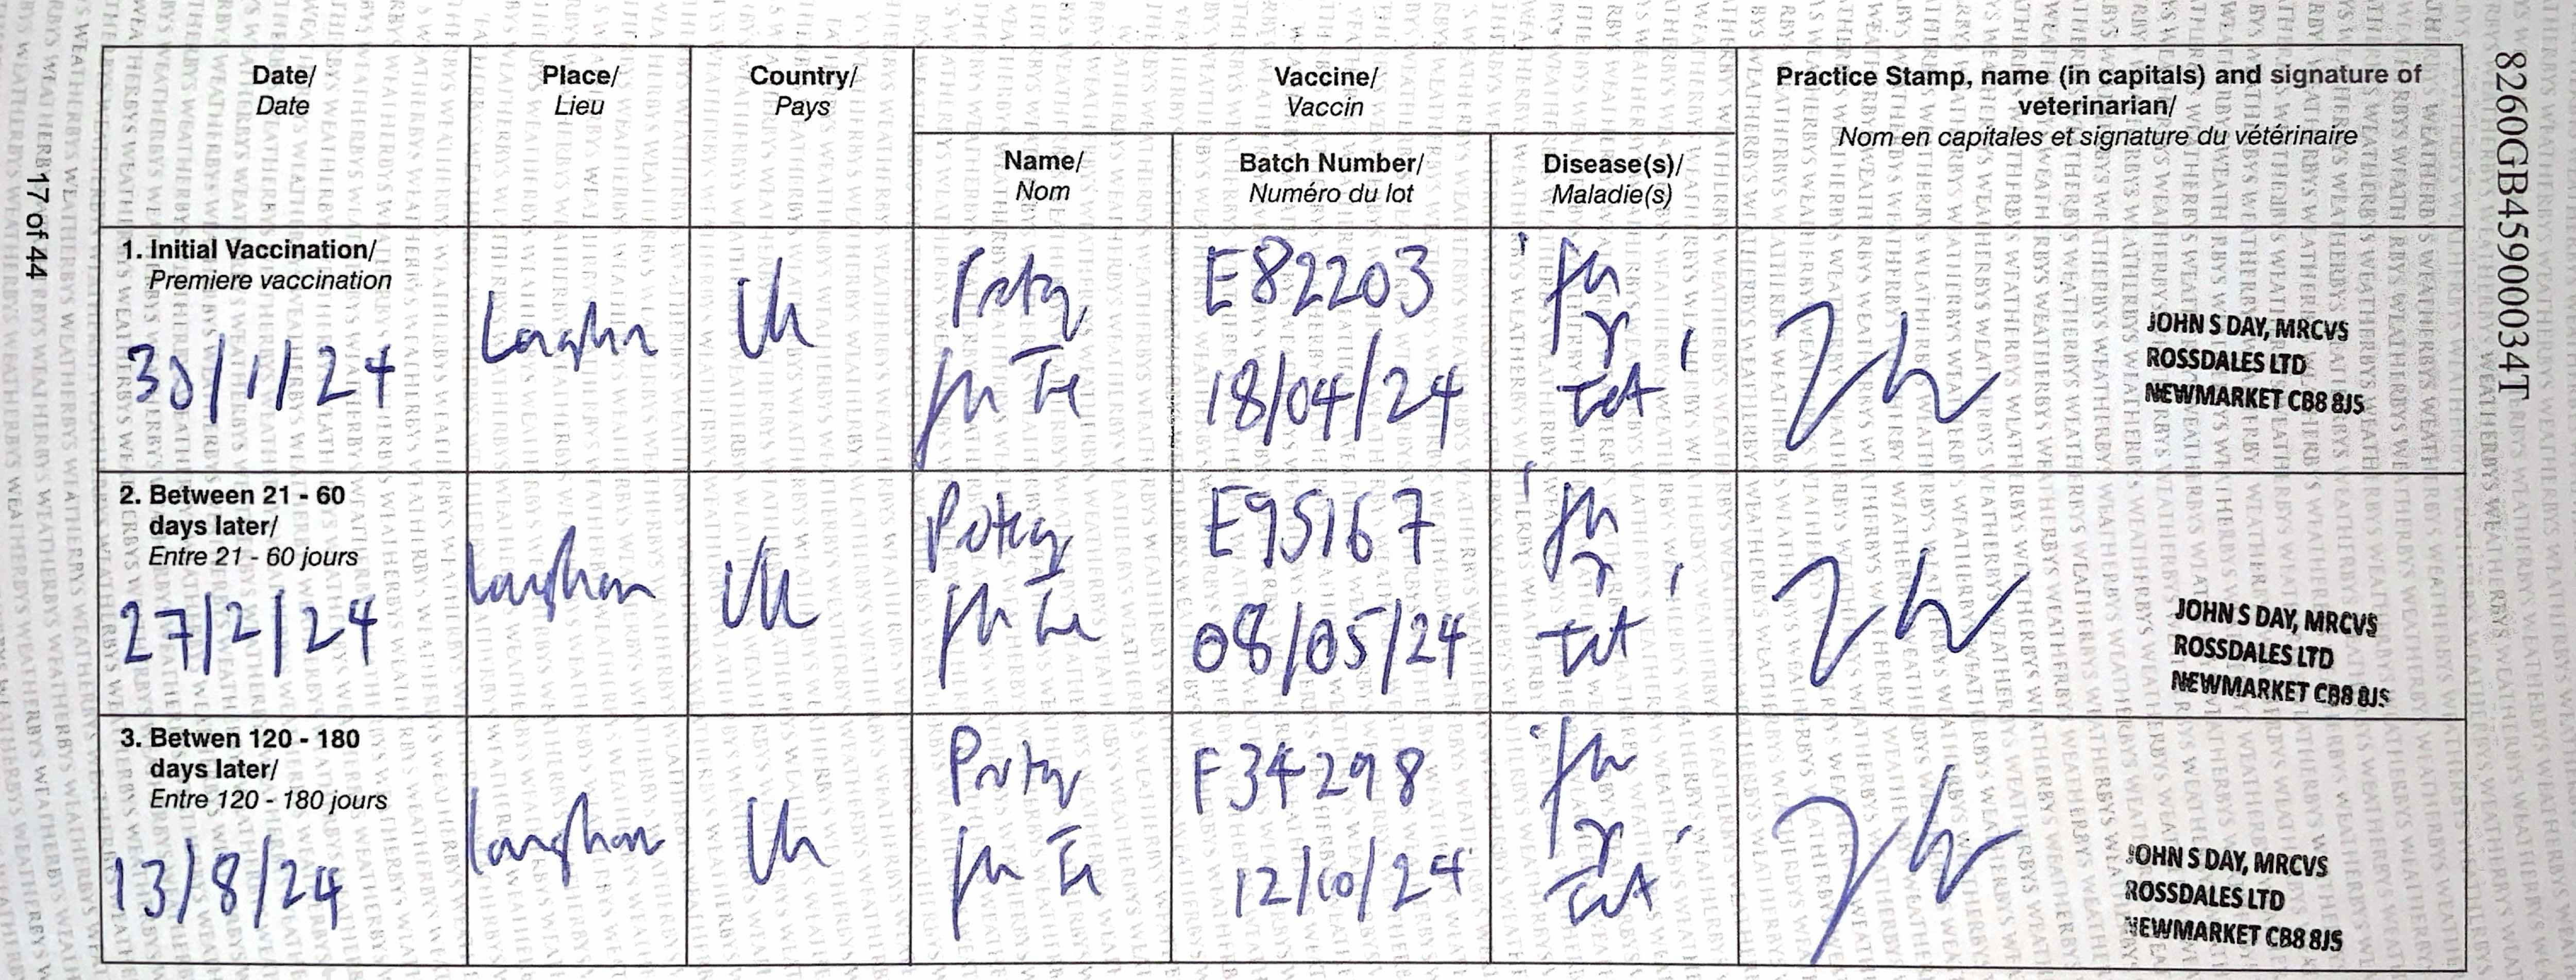 Date/
Date
Place/
Lieu
Country/
Pays
Vaccine/
Vaccin
Practice Stamp, name (in capitals) and signature of
veterinarian/
Nom en capitales et signature du vétérinaire
Name/
Nom
Batch Number/
Numéro du lot
Disease(s)/
Maladie(s)
1. Initial Vaccination/
Premiere vaccination
30/1/24
Uk
E82203
18/04/24
Tet
JOHN S DAY, MRCVS
ROSSDALES LTD
NEWMARKET CB8 8JS
2. Between 21 - 60
days later/
Entre 21 - 60 jours
27/2/24
Uk
E95167
08/05/24
Tet
JOHN S DAY, MRCVS
ROSSDALES LTD
NEWMARKET CB8 8JS
3. Betwen 120 - 180
days later/
Entre 120 - 180 jours
13/8/24
Uk
F34298
12/10/24
Tet
JOHN S DAY, MRCVS
ROSSDALES LTD
NEWMARKET CB8 8JS
17 of 44
8260GB45900034T
WEATHERBYS